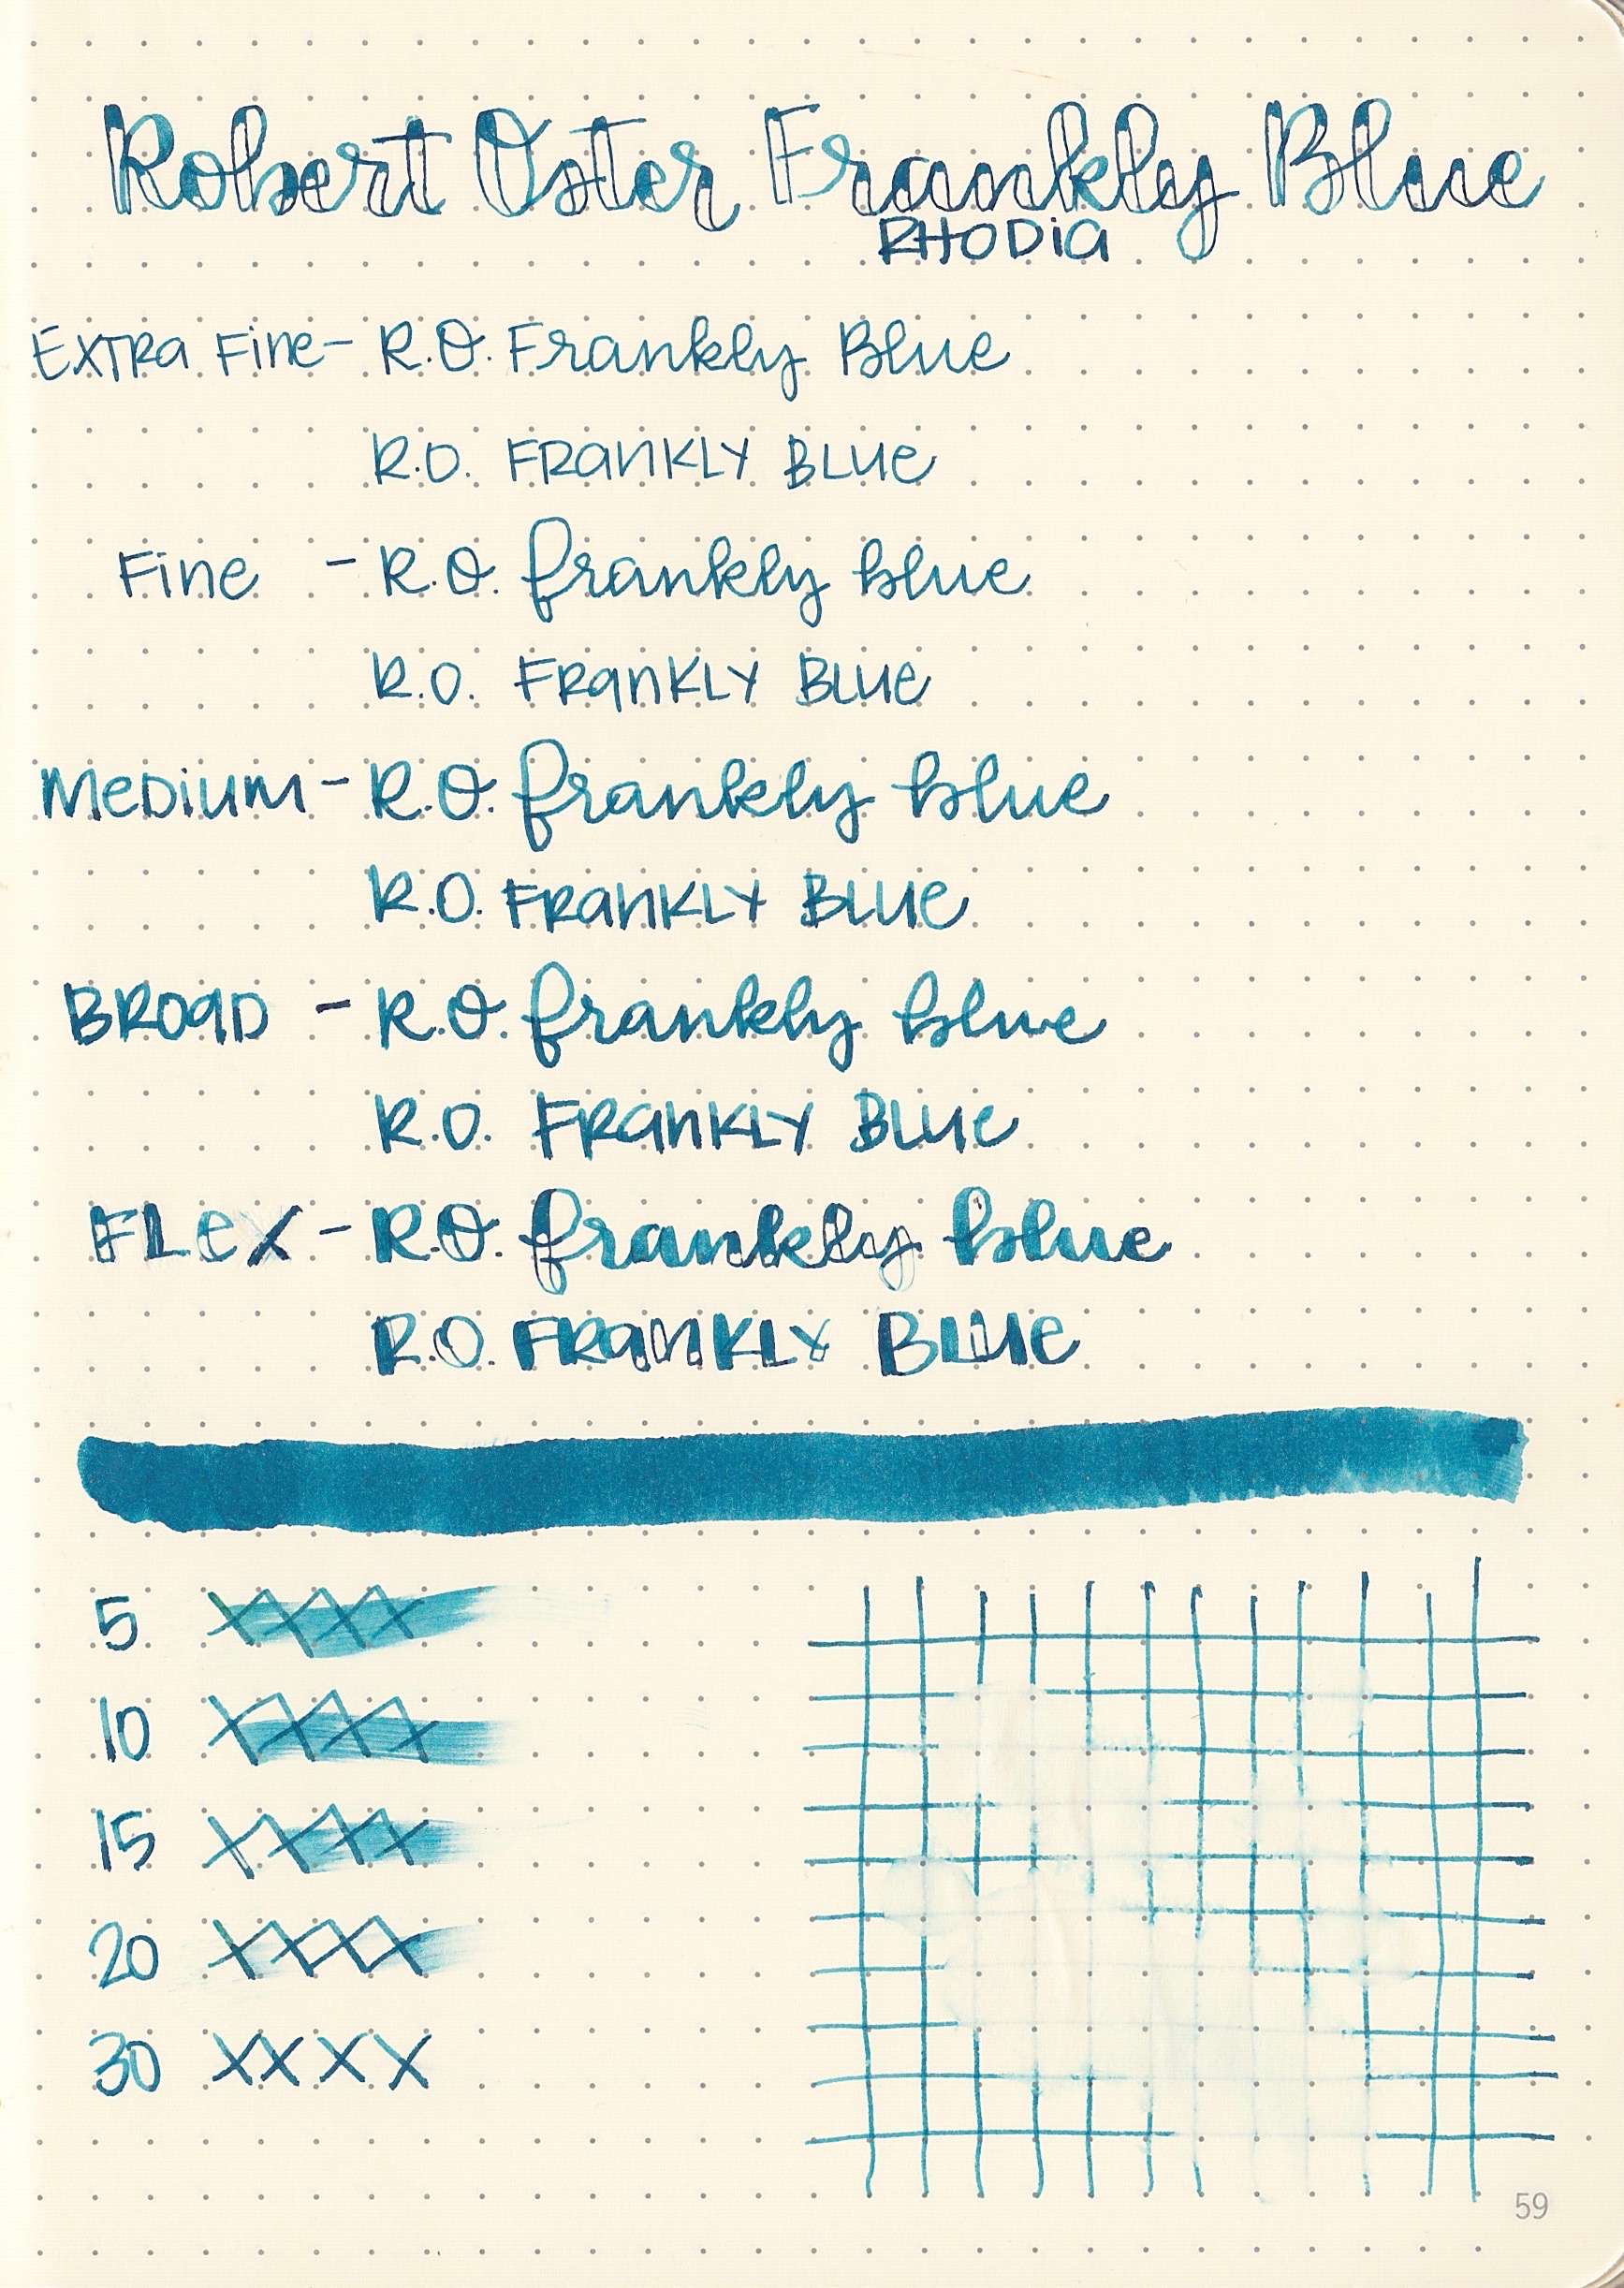 Robert Oster Frankly Blue
RHODIA
Extra Fine - R.O. Frankly Blue
R.O. FRANKLY BLUE
Fine - R.O. frankly blue
R.O. FRANKLY BLUE
Medium - R.O. frankly blue
R.O. FRANKLY BLUE
BROAD - R.O. frankly blue
R.O. FRANKLY BLUE
FLEX - R.O. frankly blue
R.O. FRANKLY BLUE
5 XXXX
10 XXXX
15 XXXX
20 XXXX
30 XXXX
59